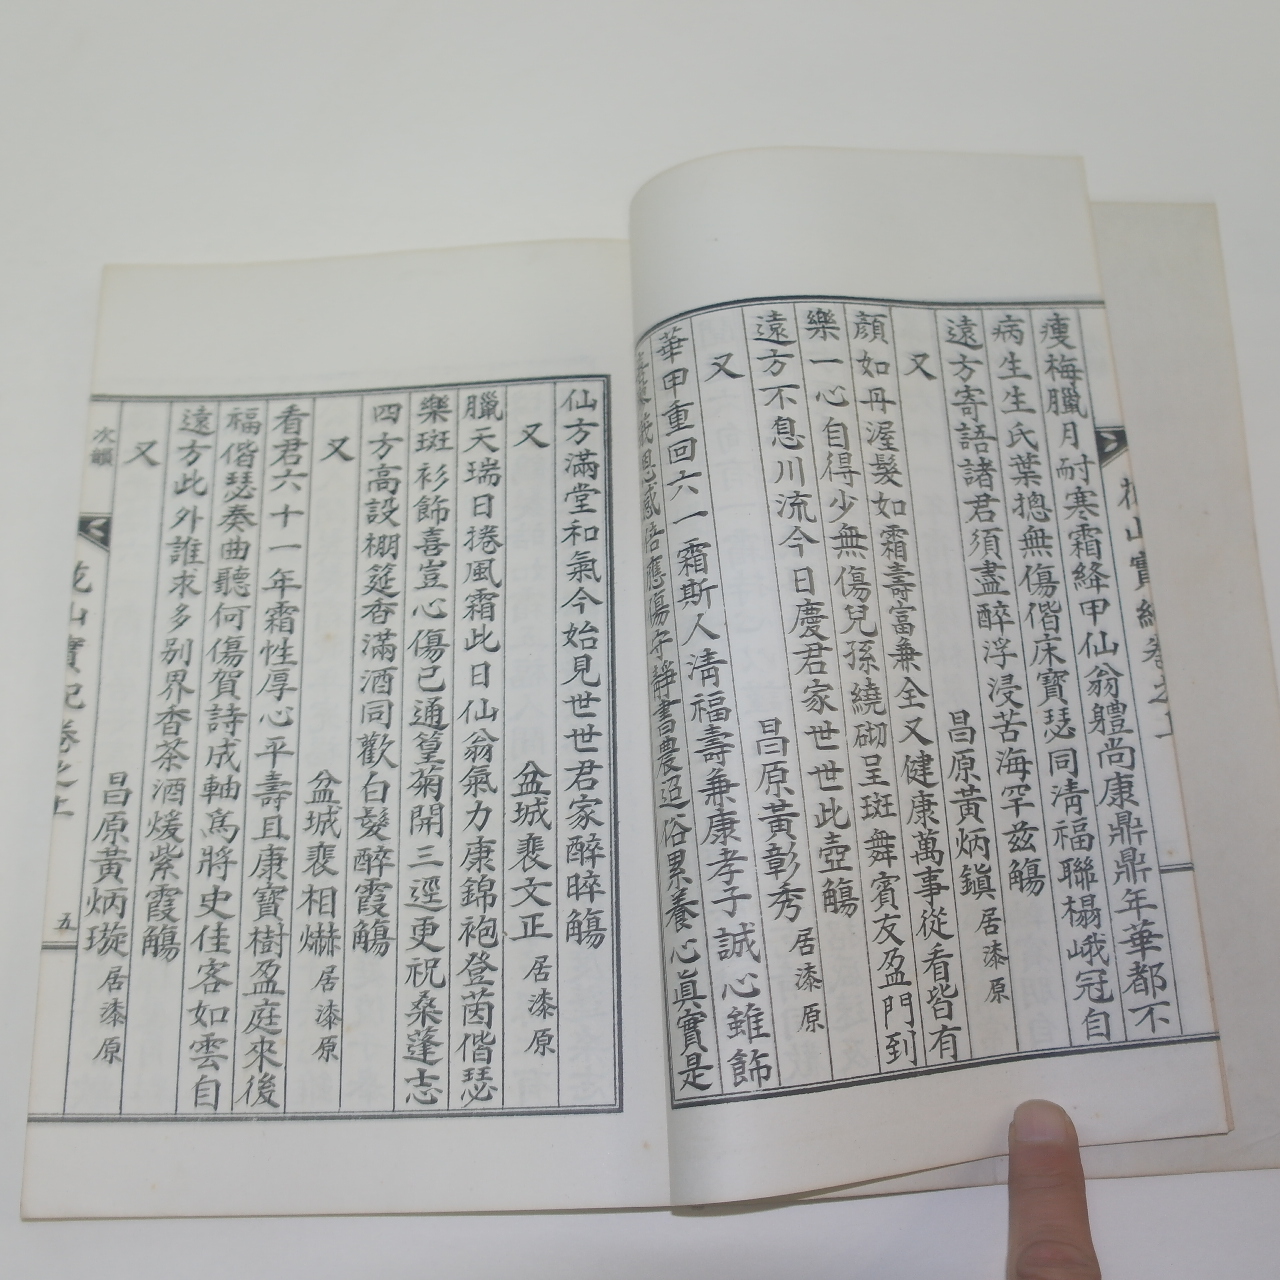 瘦梅臘月耐寒霜絳甲仙翁體尚康鼎鼎年華都不
病生生氏葉摠無傷偕床寶瑟同淸福聯榻峨冠自
遠方寄語諸君須盡醉浮浸苦海罕茲觴
又 昌原黃炳鎭 居漆原
顔如丹渥髮如霜壽富兼全又健康萬事從看皆有
樂一心自得少無傷兒孫繞砌呈斑舞賓友盈門到
遠方不息川流今日慶君家世世此壺觴
又 昌原黃彰秀 居漆原
華甲重回六一霜斯人淸福壽兼康孝子誠心雖飾
恩感倍應傷守靜書農迢俗累養心眞實是
仙方滿堂和氣今始見世世君家醉晬觴
又 盆城裵文正 居漆原
臘天瑞日捲風霜此日仙翁氣力康錦袍登茵偕瑟
樂斑衫飾喜豈心傷已通篁菊開三逕更祝桑蓬志
四方高設棚筵香滿酒同歡白髮醉霞觴
又 盆城裵相爀 居漆原
看君六十一年霜性厚心平壽且康寶樹盈庭來後
福偕瑟奏曲聽何傷賀詩成軸爲將史佳客如雲自
遠方此外誰求多別界香茶酒煖紫霞觴
又 昌原黃炳璇 居漆原
次韻 山實紀卷之上 五